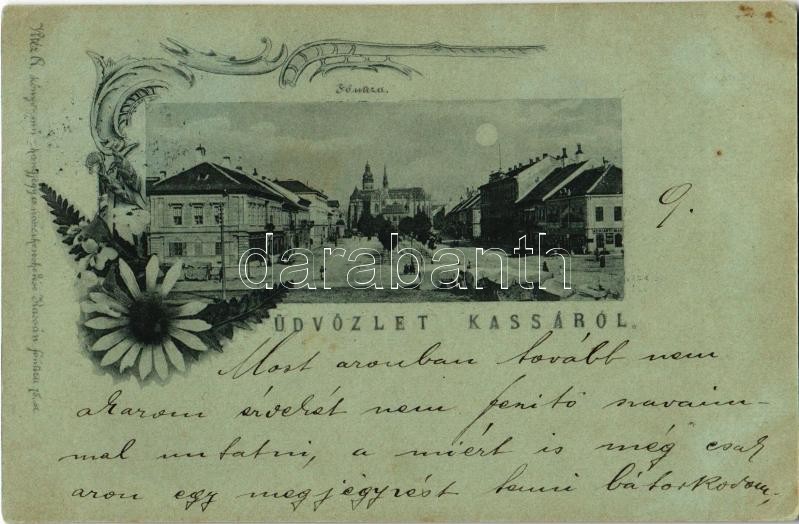 Főutca.
darabanth
ÜDVÖZLET KASSÁRÓL.
9.
Most azonban tovább nem
akarom érvekét nem fenitő szavaim-
mal untatni, a miért is még csak
azon egy megjegyzést tenni bátorkodom,